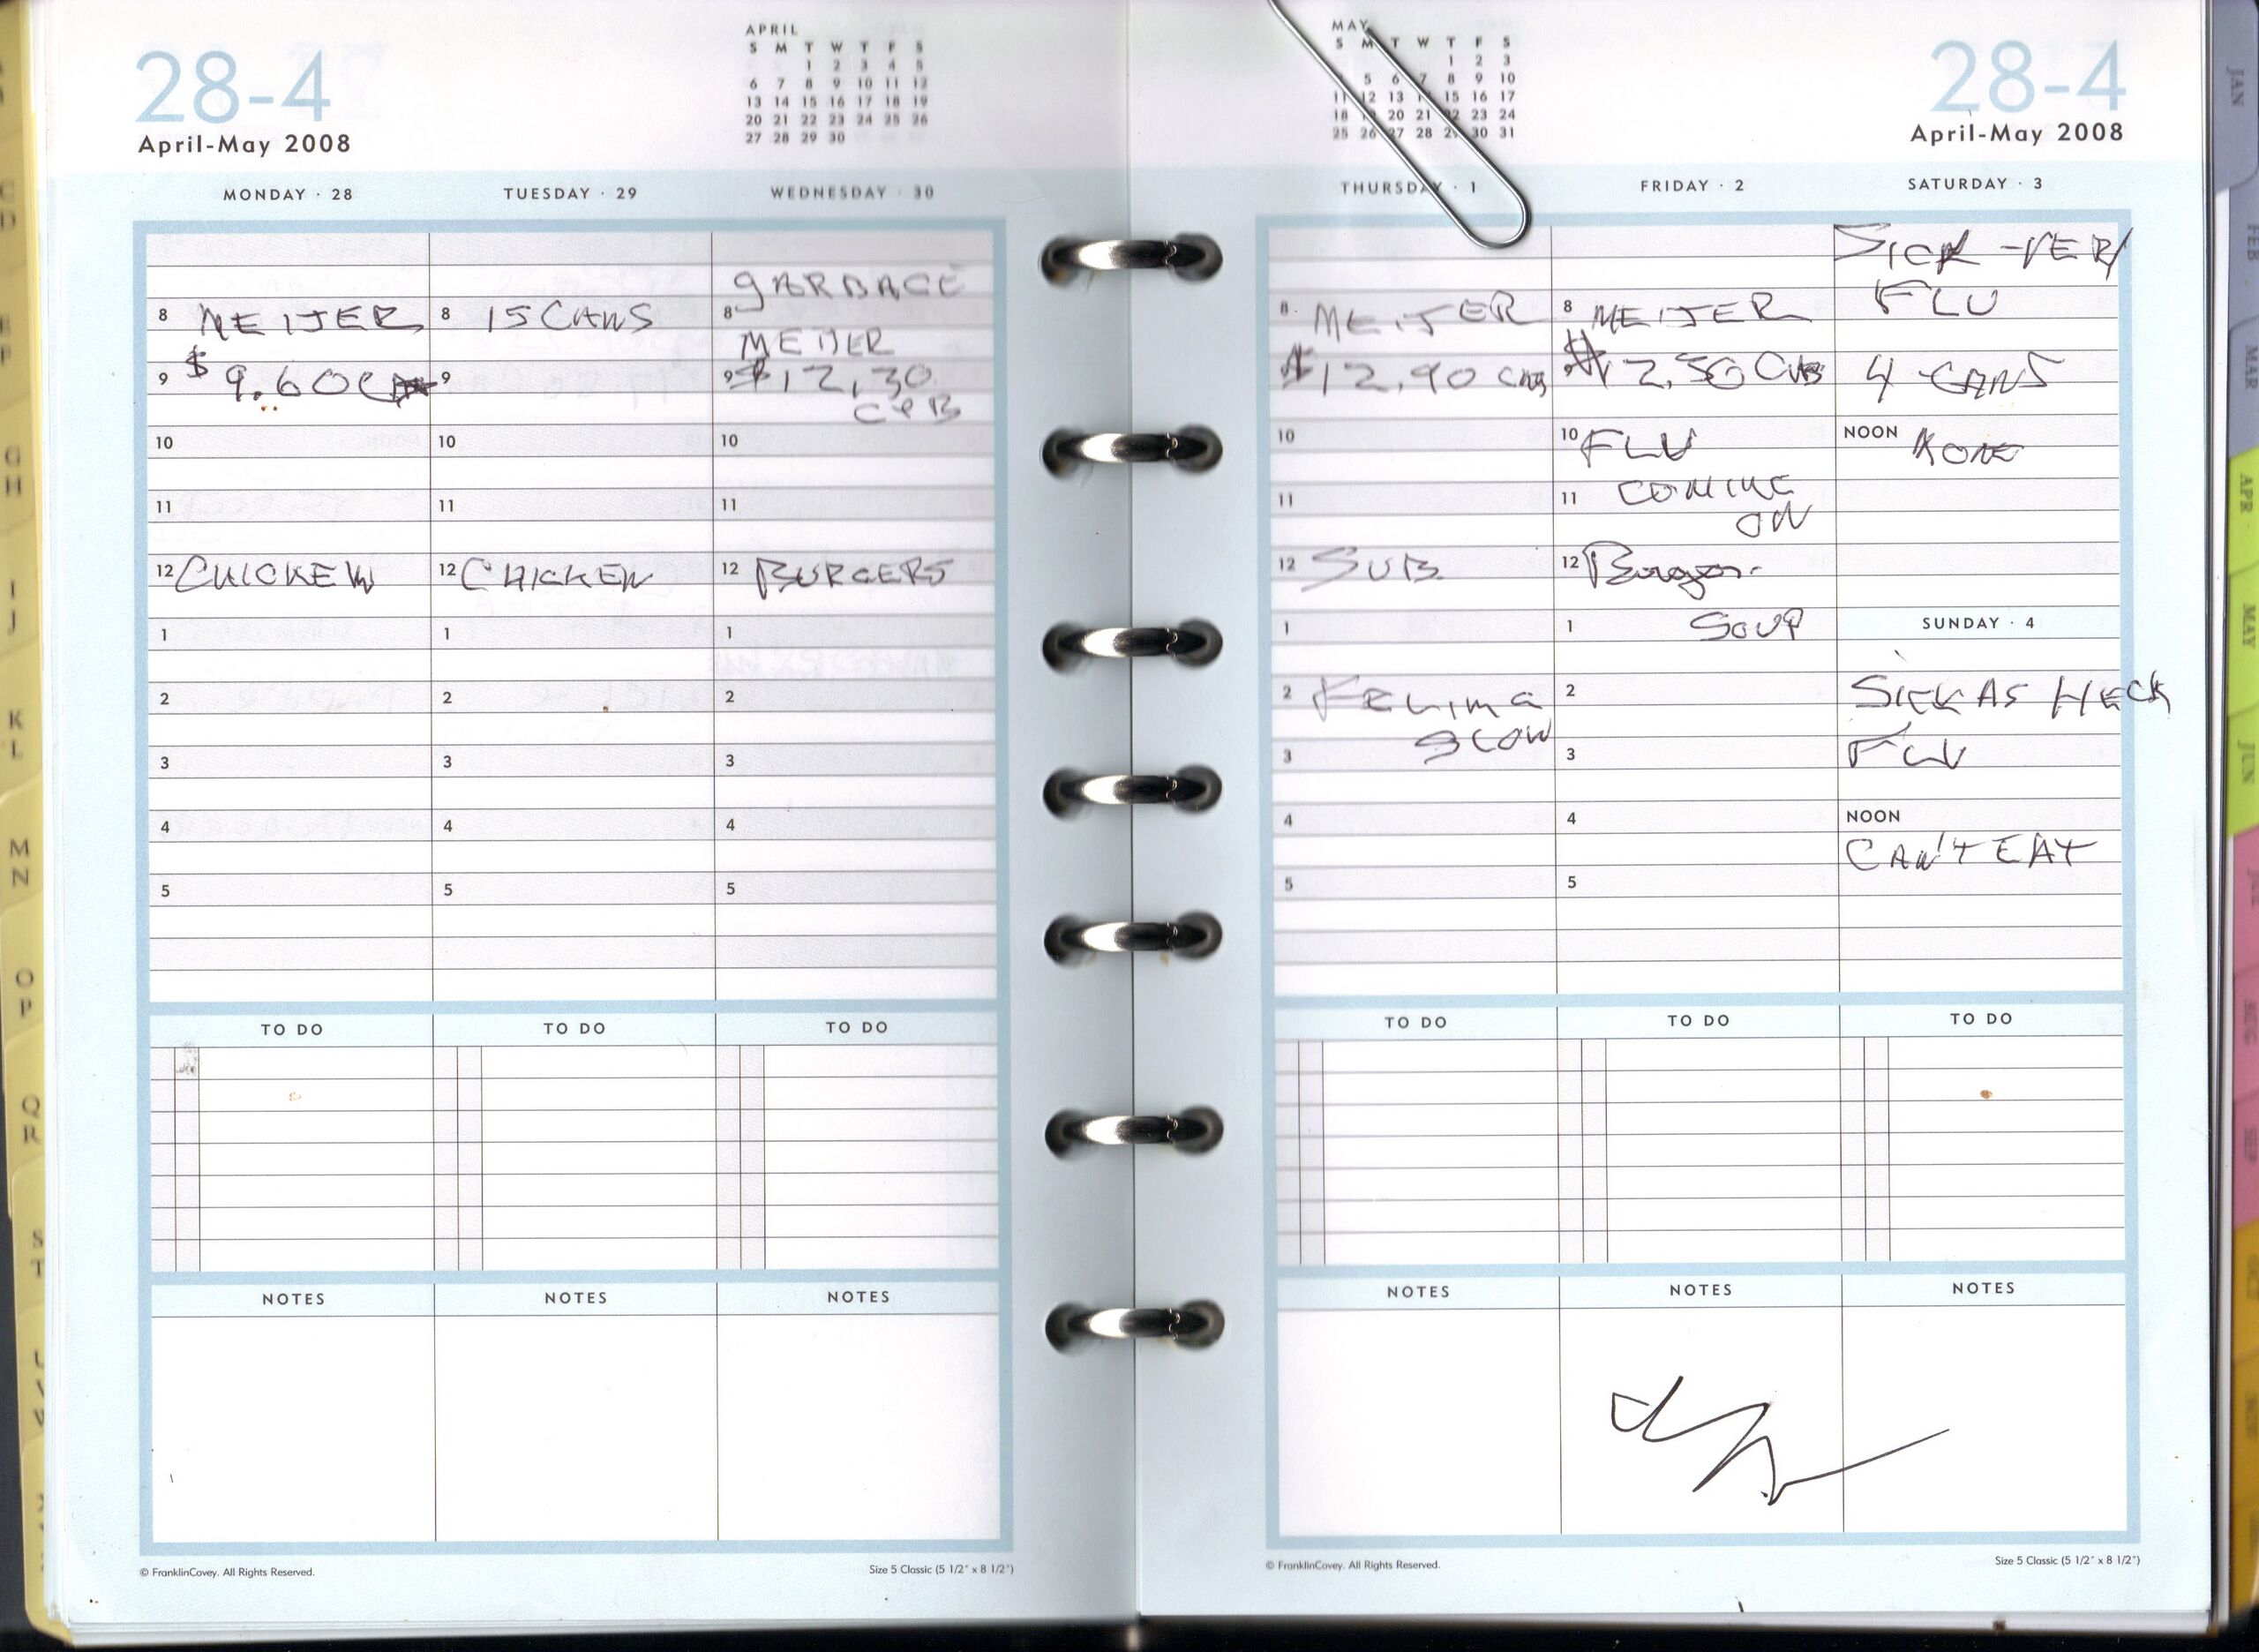 28-4
April-May 2008
APRIL
S M T W T F S
1 2 3 4 5
6 7 8 9 10 11 12
13 14 15 16 17 18 19
20 21 22 23 24 25 26
27 28 29 30
MONDAY · 28
TUESDAY · 29
WEDNESDAY · 30
GARBAGE
8 MEIJER
8 15 CANS
8
MEIJER
9 $9.60
9
9 $12,30
10
10
10
11
11
11
12 CHICKEN
12 CHICKEN
12 BURGERS
1
1
1
2
2
2
3
3
3
4
4
4
5
5
5
TO DO
TO DO
TO DO
NOTES
NOTES
NOTES
© FranklinCovey. All Rights Reserved.
Size 5 Classic (5 1/2" x 8 1/2")
MAY
S M T W T F S
1 2 3
5 6 7 8 9 10
11 12 13 15 16 17
18 20 21 22 23 24
25 26 27 28 29 30 31
28-4
April-May 2008
THURSDAY · 1
FRIDAY · 2
SATURDAY · 3
SICK -VERY
FLU
8 MEIJER
8 MEIJER
$12,90
4 CANS
10
10 FLU
NOON NONE
11
11 COMING
ON
12 SUB
12 Burger
1
1 SOUP
SUNDAY · 4
2
SLOW
2
SICK AS HECK
3
3
FLU
4
4
NOON
CAN'T EAT
5
5
TO DO
TO DO
TO DO
NOTES
NOTES
NOTES
© FranklinCovey. All Rights Reserved.
Size 5 Classic (5 1/2" x 8 1/2")
C
D
G
H
I
J
K
L
M
N
O
P
Q
R
S
T
U
V
W
JAN
FEB
MAR
APR
MAY
JUN
AUG
SEP
OCT